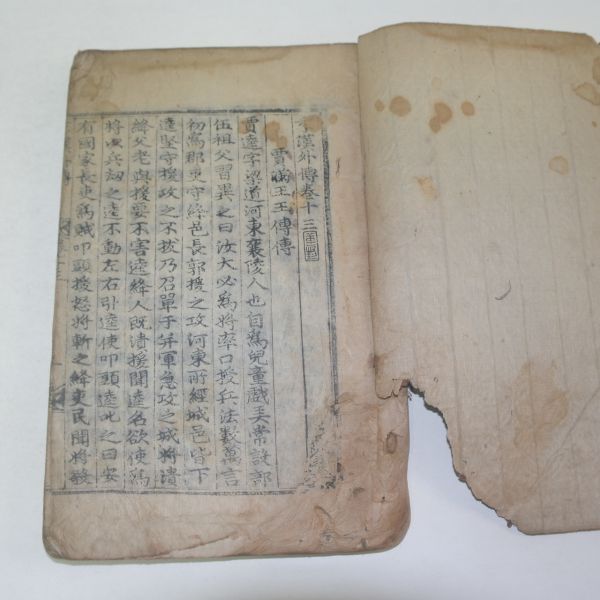 漢外傳卷十三
賈滿王王傳傳
賈逵字梁道河東襄陵人也自爲兒童戲美常設部
伍祖父習異之曰汝大必爲將率口授兵法數萬言
初爲郡吏守絳邑長郭援之攻河東所經城邑皆下
逵堅守援攻之不拔乃召單于幷軍急攻之城將潰
絳父老與援要不害逵絳人既潰援聞逵名欲使爲
將以兵刼之逵不動左右引逵使叩頭逵叱之曰安
有國家長吏爲賊叩頭援怒將斬之絳吏民聞將殺